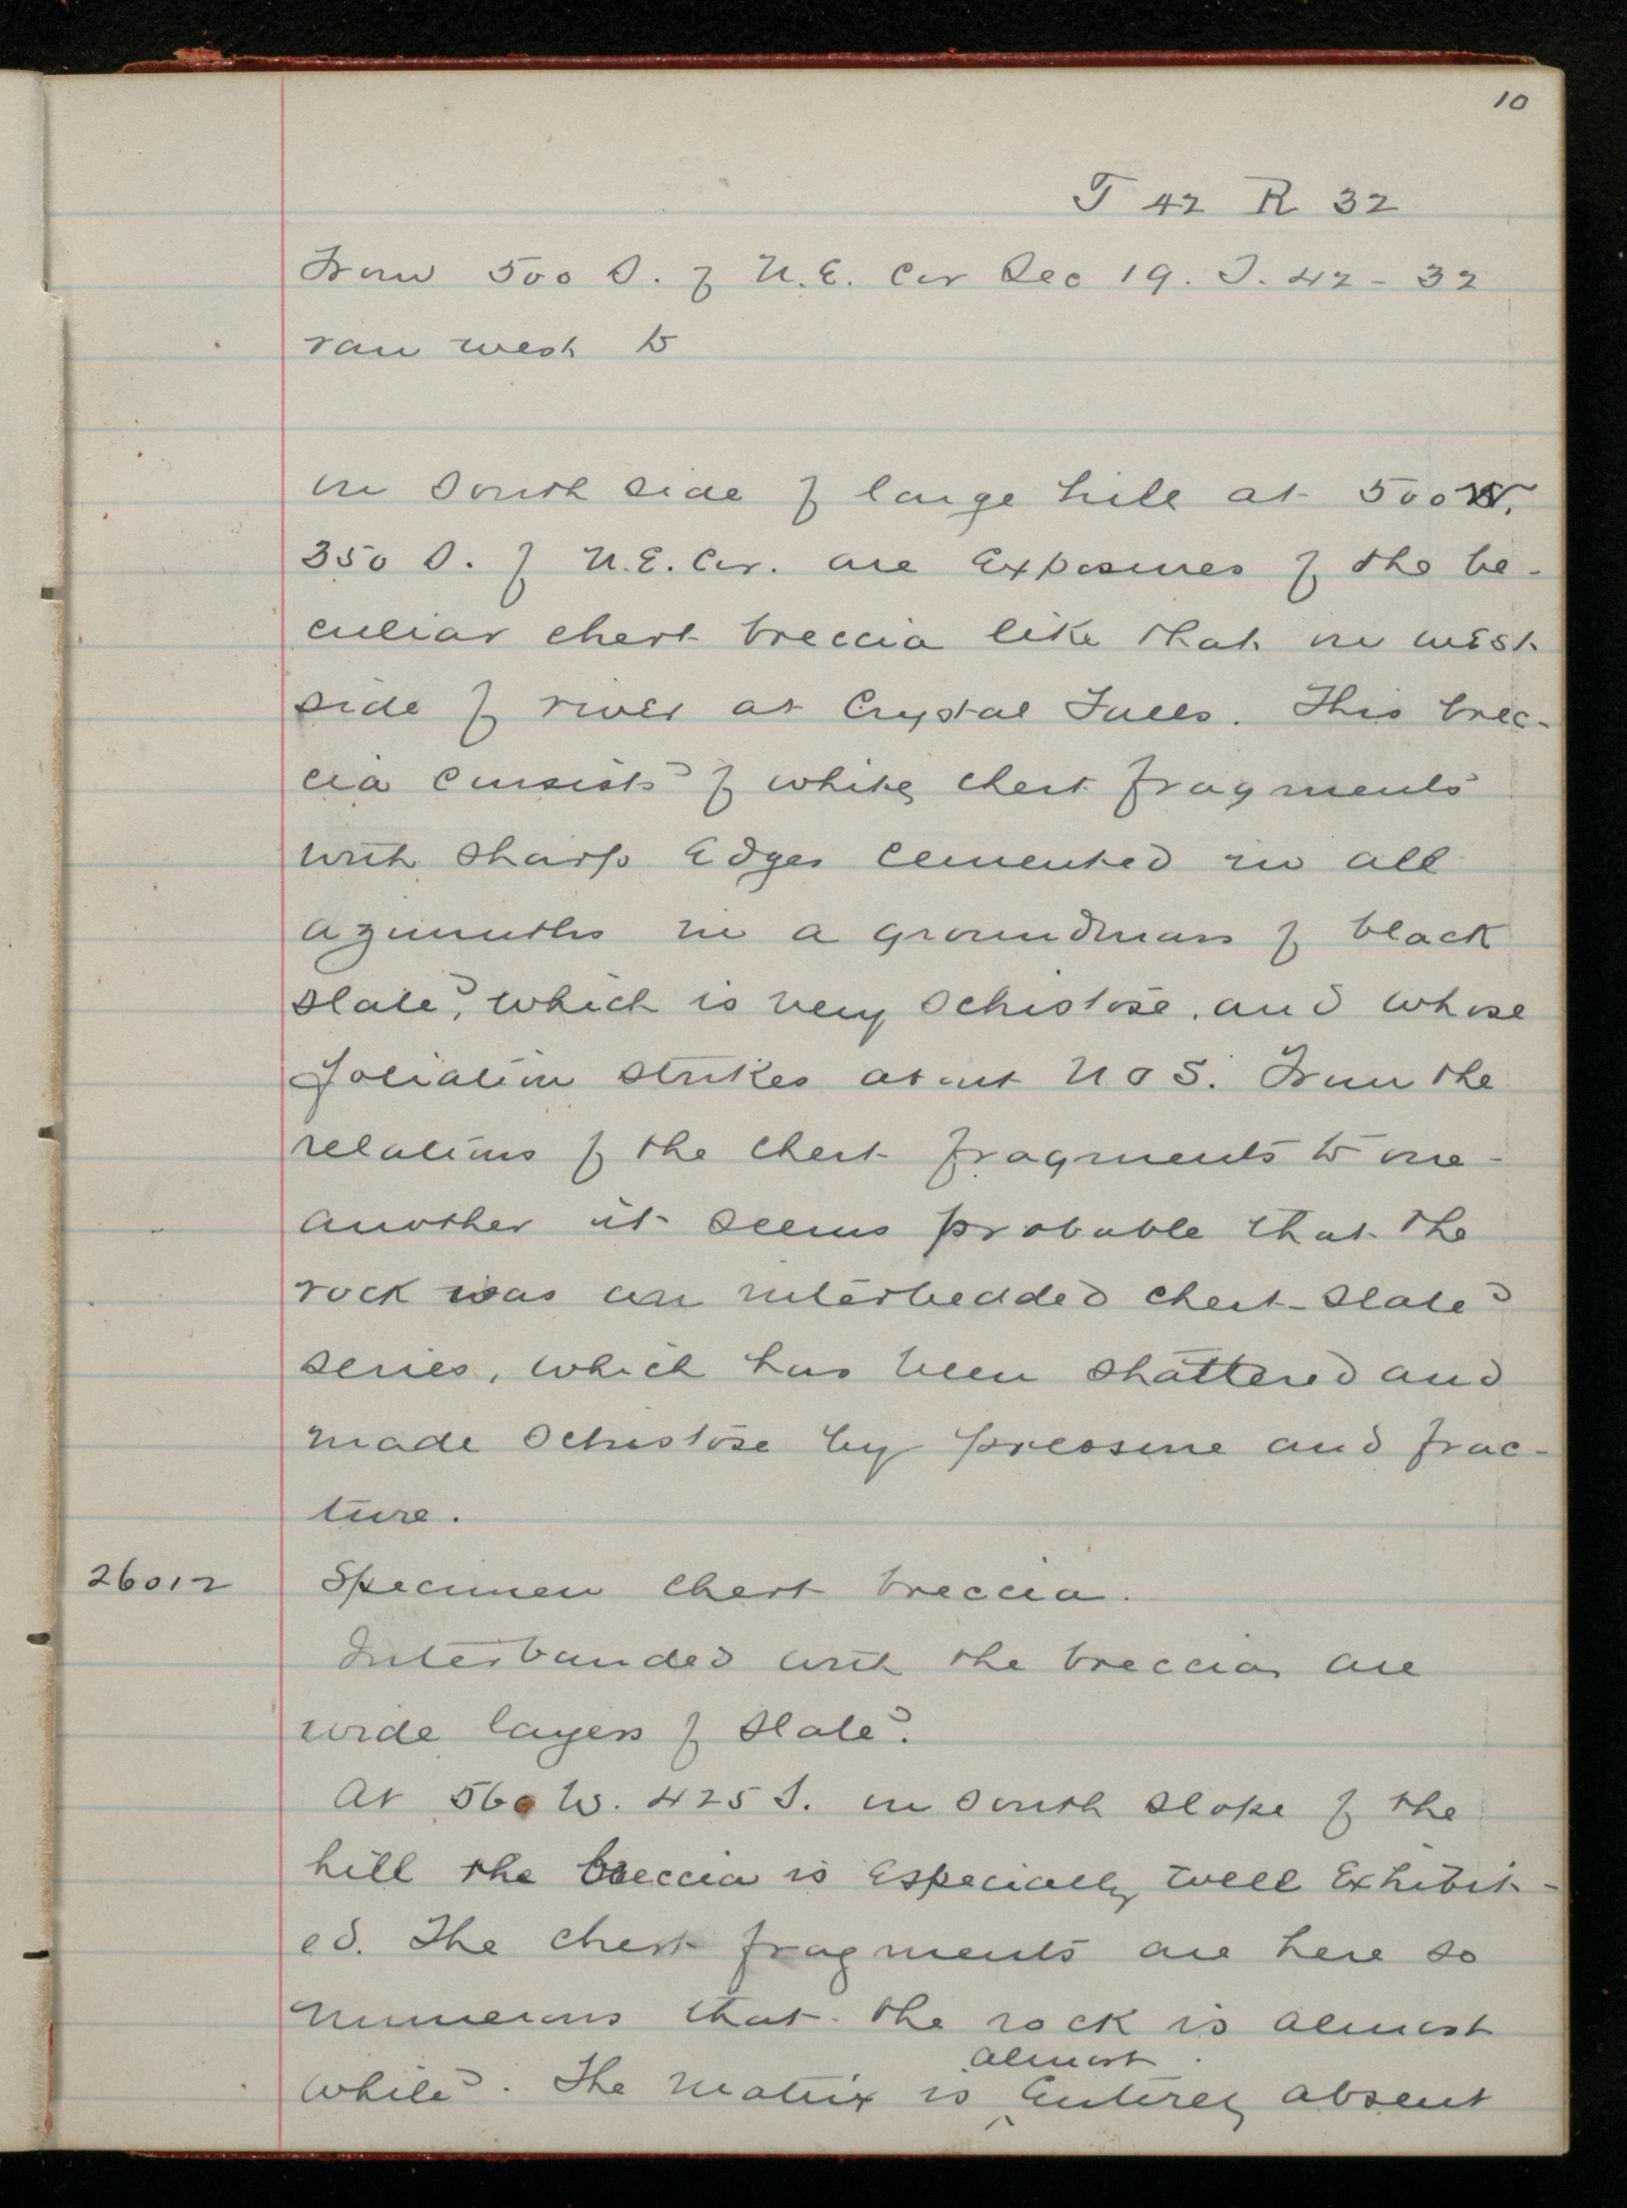 10
T 42 R 32
From 500 S. of N.E. Cor Sec 19. T. 42 - 32
ran west to
on South side of large hill at 500 W.
350 S. of N.E. Cor. are Exposures of the pe-
culiar chert breccia like that on west
side of river at Crystal Falls. This brec-
cia consists of white chert fragments
with sharp Edges cemented in all
azimuths in a groundmass of black
slate, which is very schistose, and whose
foliation strikes about N & S. From the
relations of the chert fragments to one-
another it seems probable that the
rock was an interbedded chert-slate
series, which has been shattered and
made schistose by pressure and frac-
ture.
26012 Specimen chert breccia.
Interbanded with the breccia are
wide layers of slate.
At 560 W. 425 S. on south slope of the
hill the breccia is especially well Exhibit-
ed. The chert fragments are here so
numerous that the rock is almost
almost
white. The matrix is entirely absent